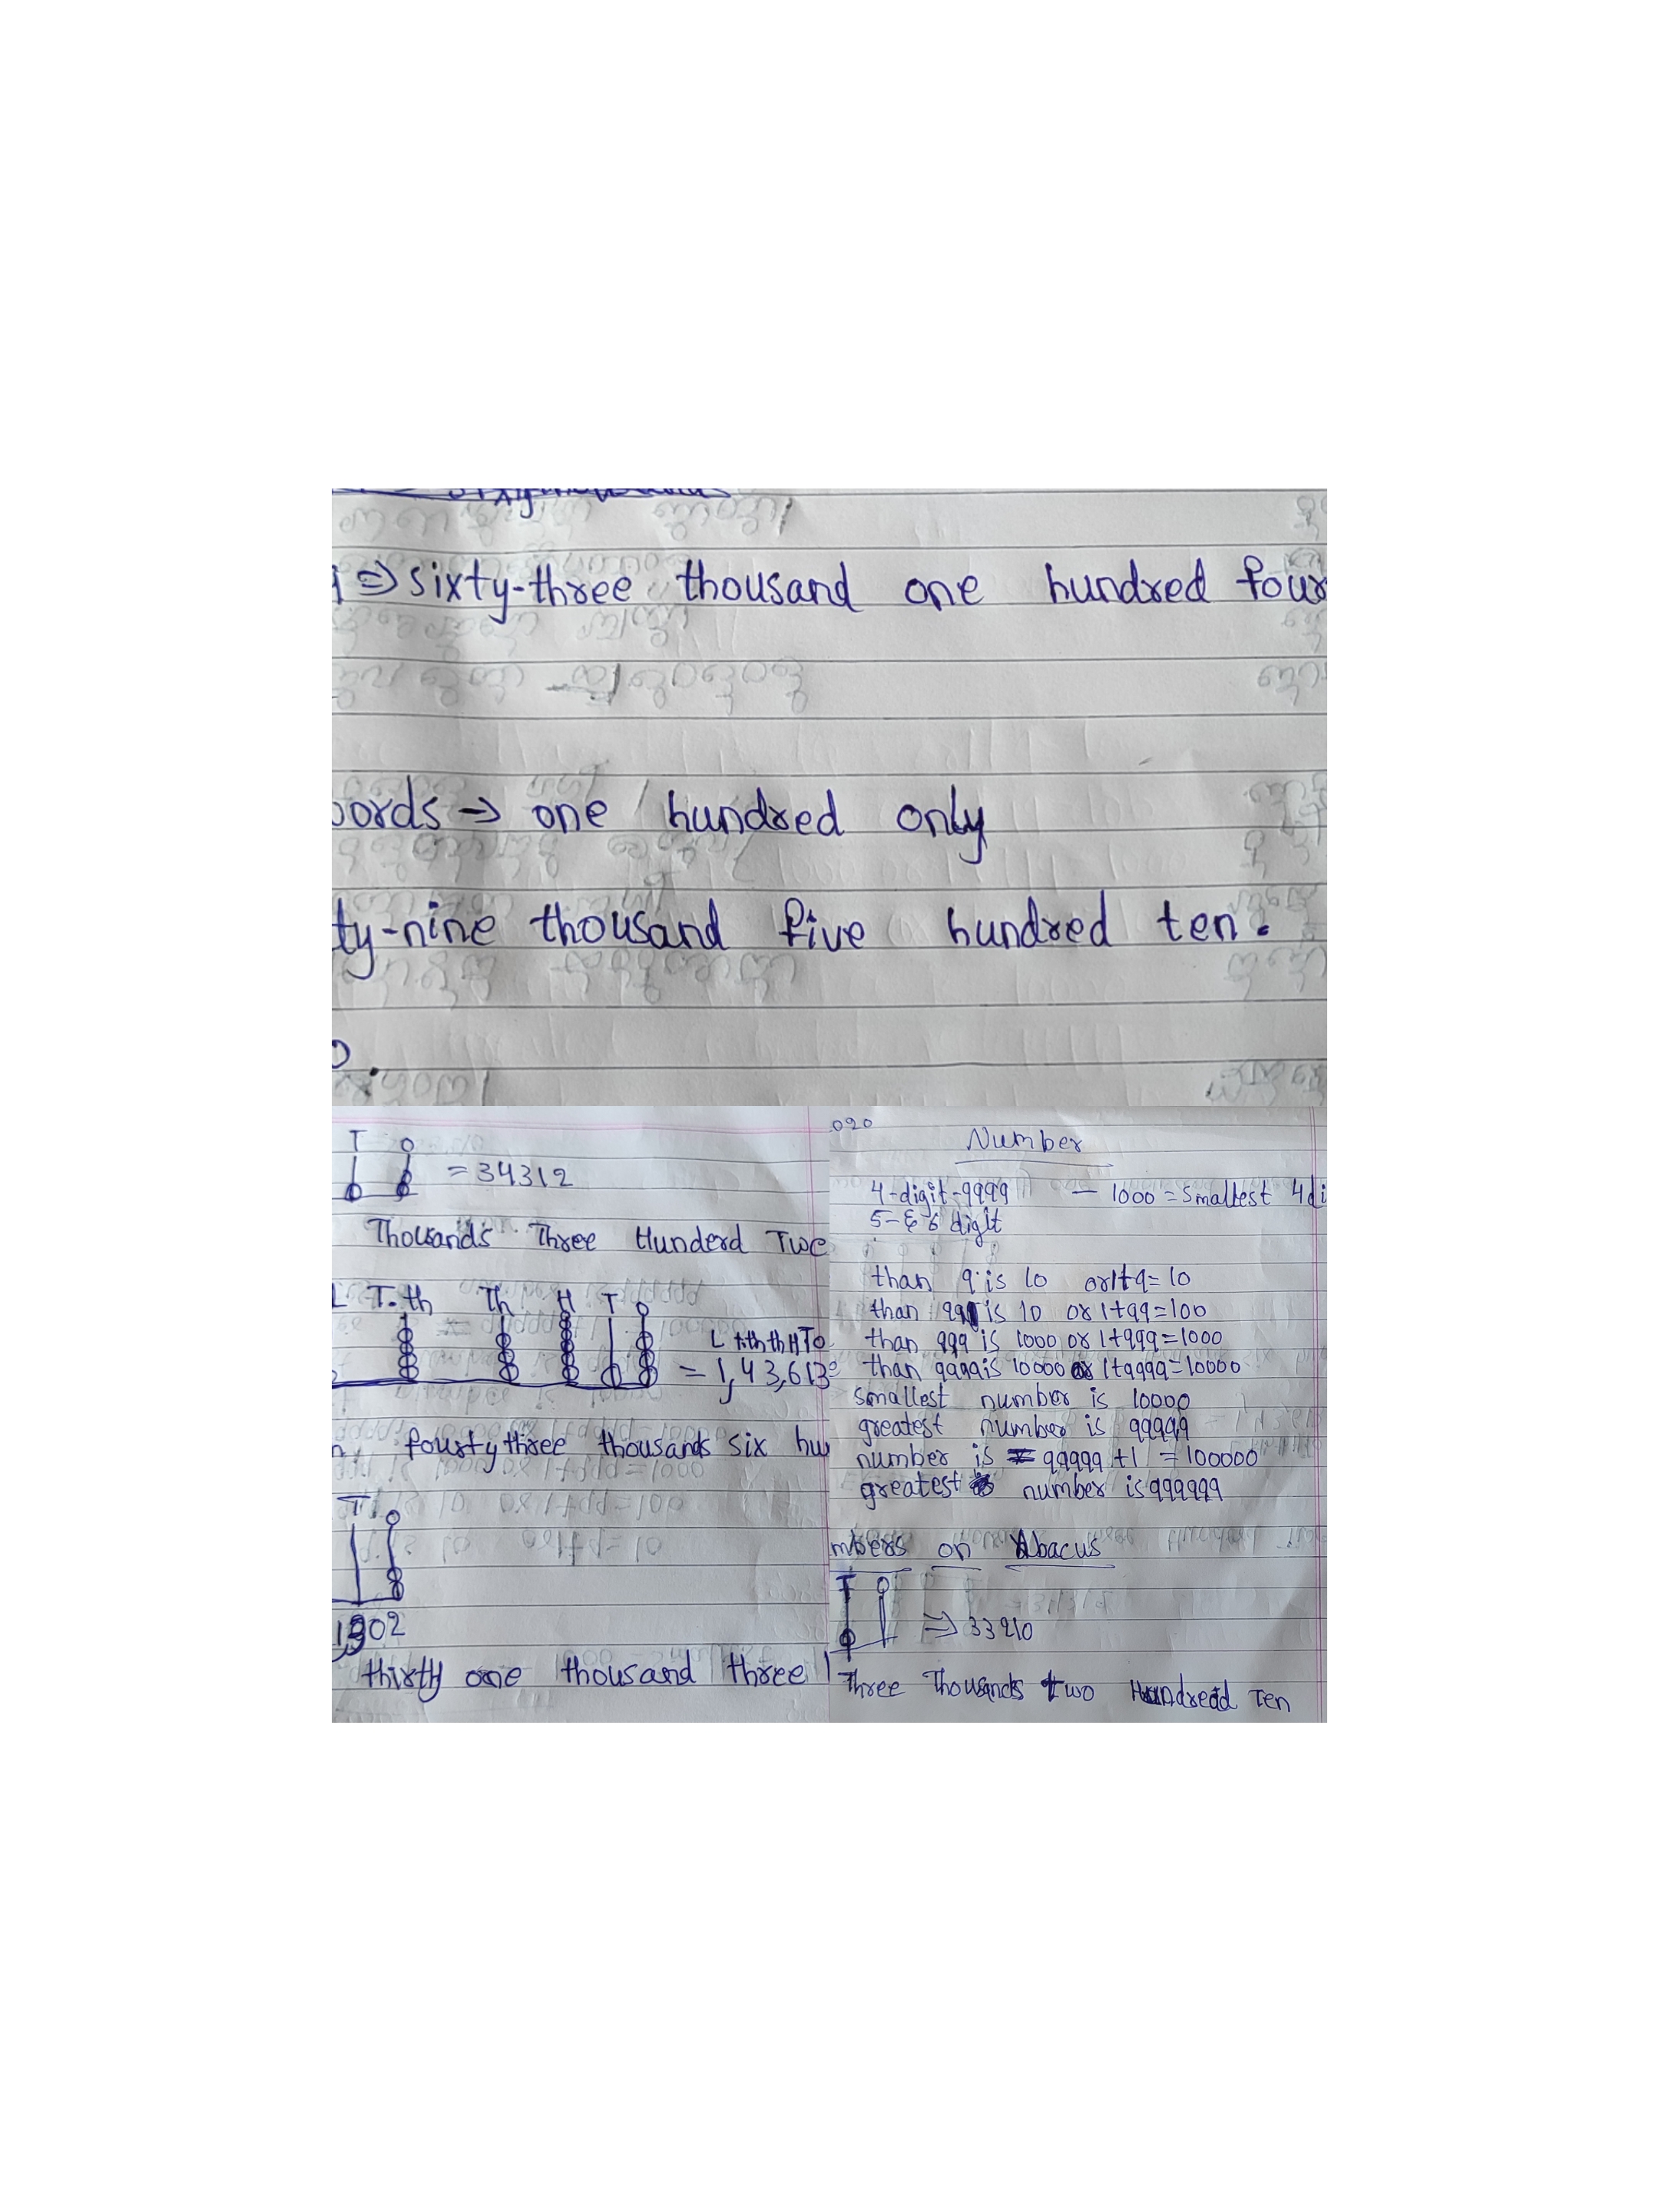 ⇒ sixty-three thousand one hundred four
words → one hundred only
ty-nine thousand five hundred ten.
T O
= 34312
Thousands Three Hunderd Twe
L T.th Th H T O
L t.th th H T O
= 1,43,613
fourty three thousands six hu
T O
302
thirty one thousand three
020
Number
4-digit-9999 — 1000 = Smallest 4 di
5-& 6 digit
than 9 is 10 or 1+9=10
than 99 is 10 or 1+99=100
than 999 is 1000 or 1+999=1000
than 9999 is 10000 or 1+9999=10000
smallest number is 10000
greatest number is 99999
number is = 99999+1 = 100000
greatest number is 999999
mbers on Abacus
T O
⇒ 33210
Three Thousands two Hundredd Ten